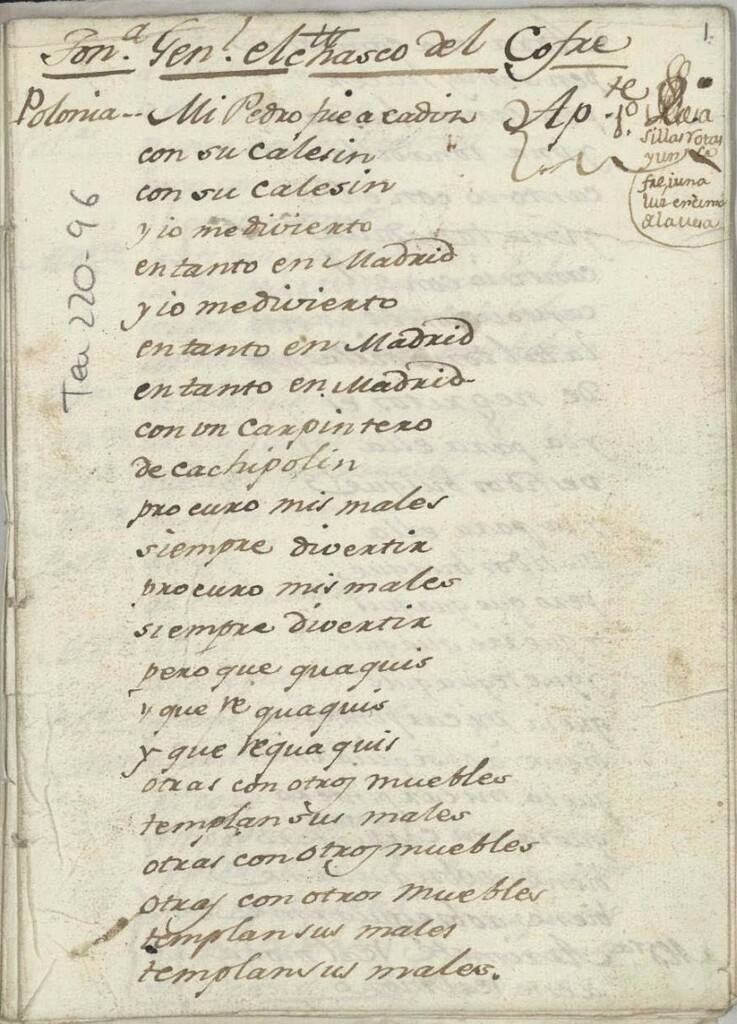 1.
Ton.ª Gen.l el chasco del Cofre
Polonia-- Mi Pedro fue a cadiz
Ap.te 1º
sillas rotas
y un co
fre, i una
luz encima
de la mesa
con su calesin
con su calesin
y io me divierto
en tanto en Madrid
y io me divierto
en tanto en Madrid
en tanto en Madrid
con un carpintero
de cachipolin
procuro mis males
siempre divertir
procuro mis males
siempre divertir
pero que quaquis
y que re quaquis
y que requaquis
otras con otros muebles
templan sus males
otras con otros muebles
otras con otros muebles
templan sus males
templan sus males.
Tea 220-96